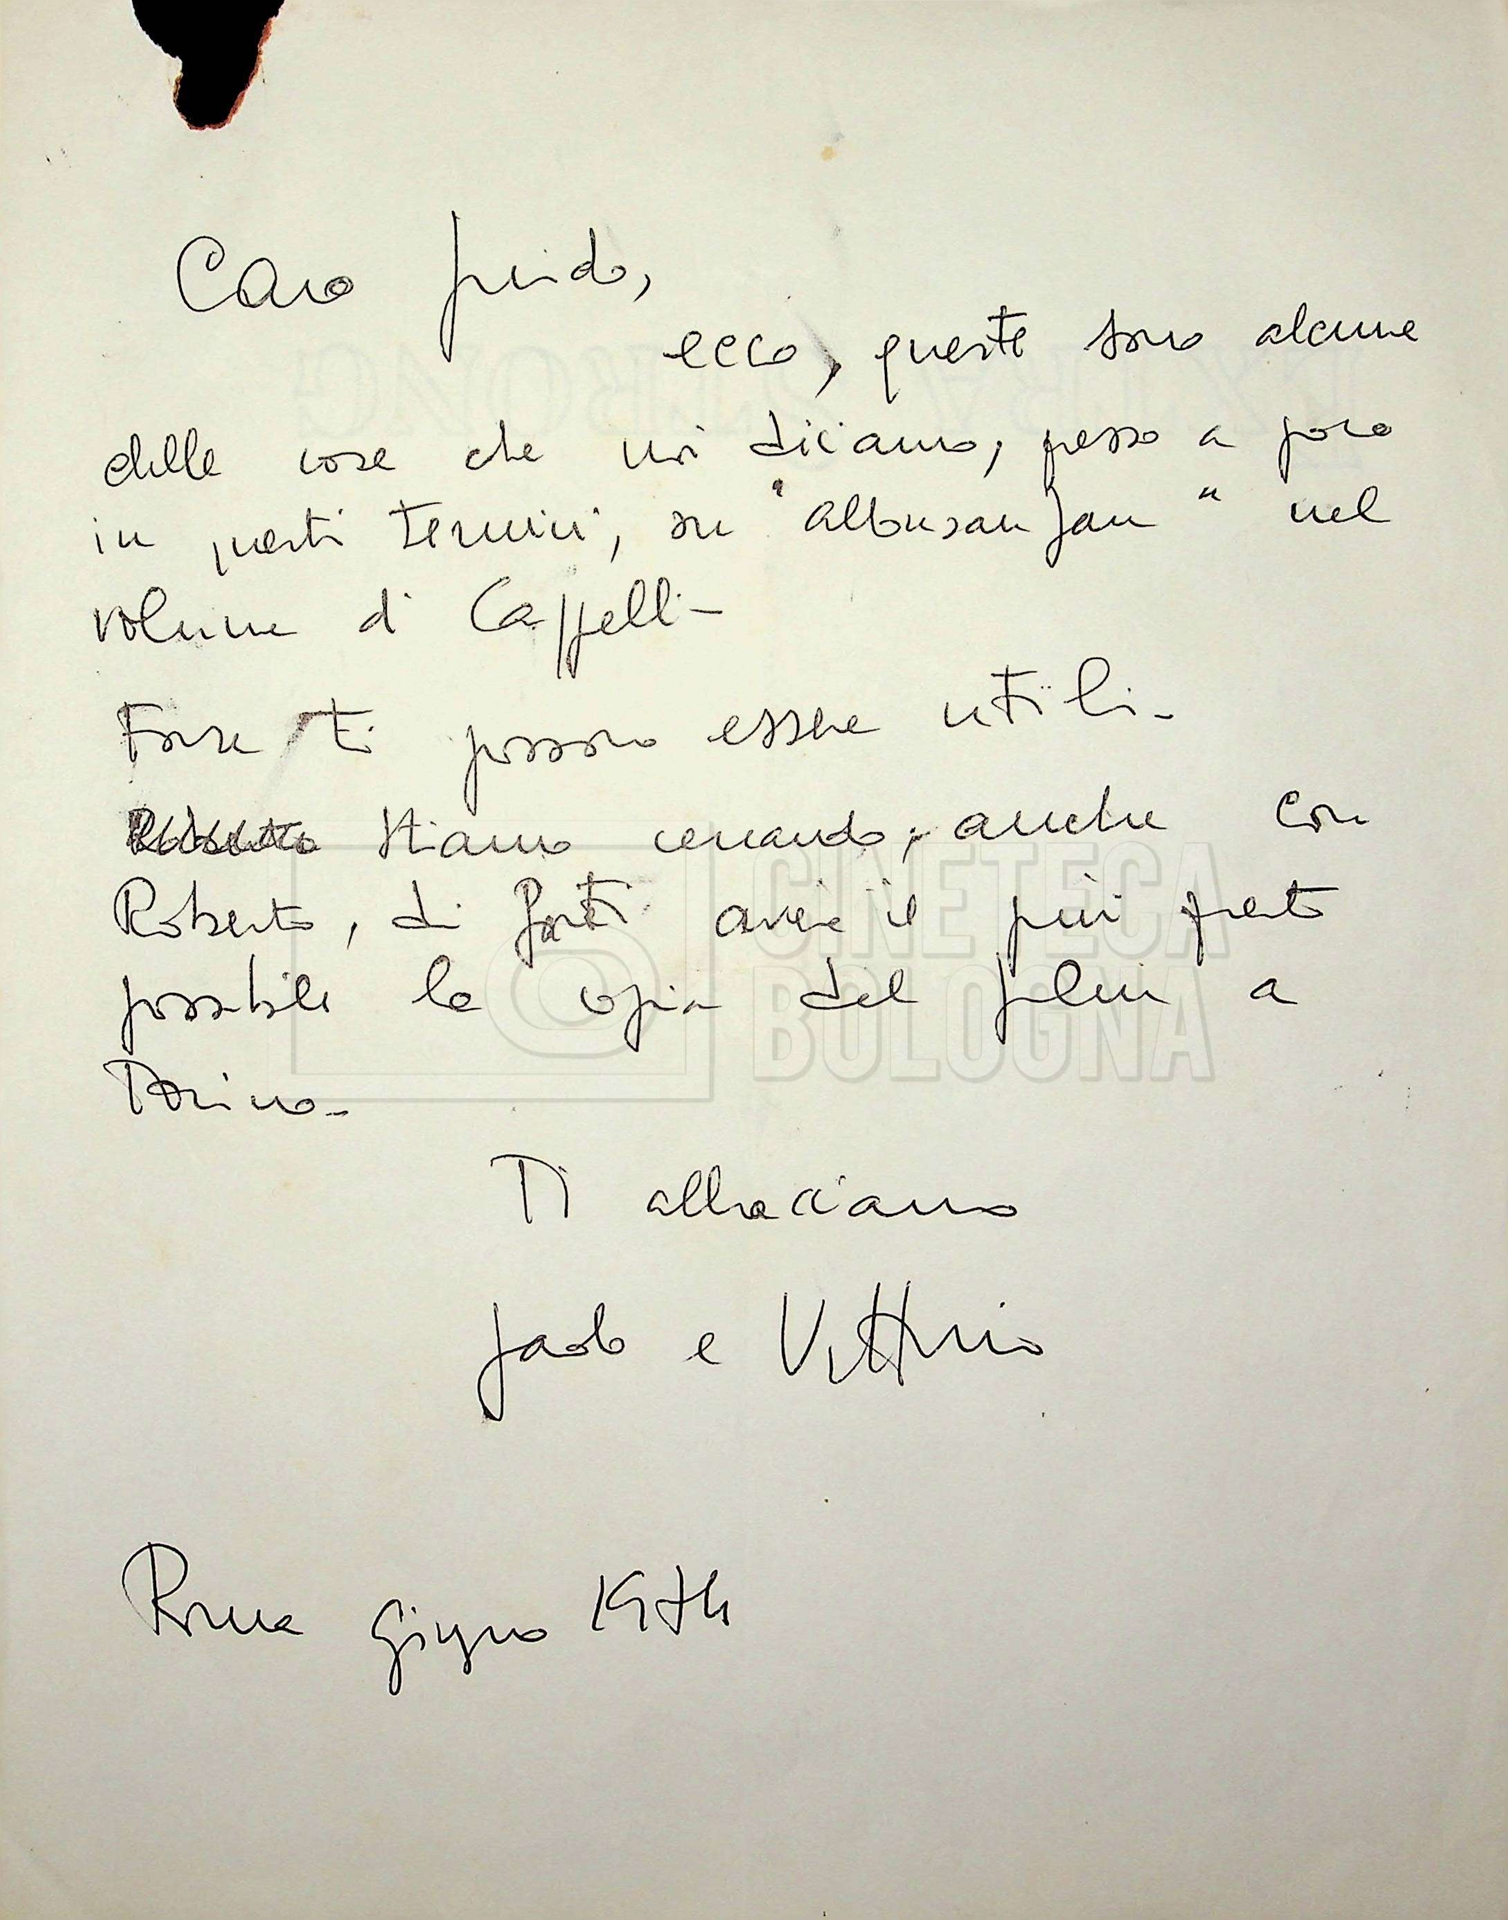 Caro Guido,
ecco, queste sono alcune
delle cose che noi diciamo, presso a poco
in questi termini, su "Allonsanfan" nel
volume di Cappelli -
Forse ti possono essere utili -
Roberto Stiamo cercando, anche con
Roberto, di farti avere il più presto
possibile la copia del film a
Torino -
Ti abbracciamo
Paolo e Vittorio
Roma Giugno 1974
EXTRA STRONG
CINETECA
BOLOGNA